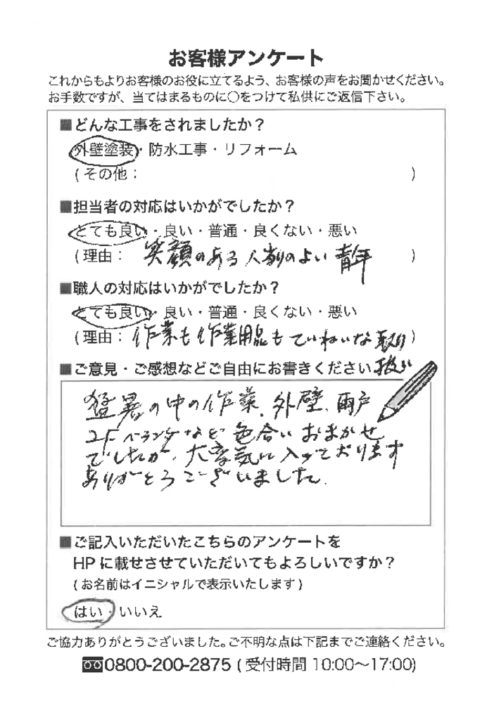 お客様アンケート
これからもよりお客様のお役に立てるよう、お客様の声をお聞かせください。
お手数ですが、当てはまるものに〇をつけて私供にご返信下さい。
■どんな工事をされましたか？
外壁塗装・防水工事・リフォーム
(その他：　　　)
■担当者の対応はいかがでしたか？
とても良い・良い・普通・良くない・悪い
(理由：笑顔のある人当りのよい青年)
■職人の対応はいかがでしたか？
とても良い・良い・普通・良くない・悪い
(理由：作業も作業用品もていねいな取り)
扱い
■ご意見・ご感想などご自由にお書きください
猛暑の中の作業、外壁、雨戸
2Fベランダなど色合いおまかせ
でしたが、大変気に入っております
ありがとうございました。
■ご記入いただいたこちらのアンケートを
HPに載せさせていただいてもよろしいですか？
(お名前はイニシャルで表示いたします)
はい・いいえ
ご協力ありがとうございました。ご不明な点は下記までご連絡ください。
0800-200-2875 (受付時間 10:00〜17:00)